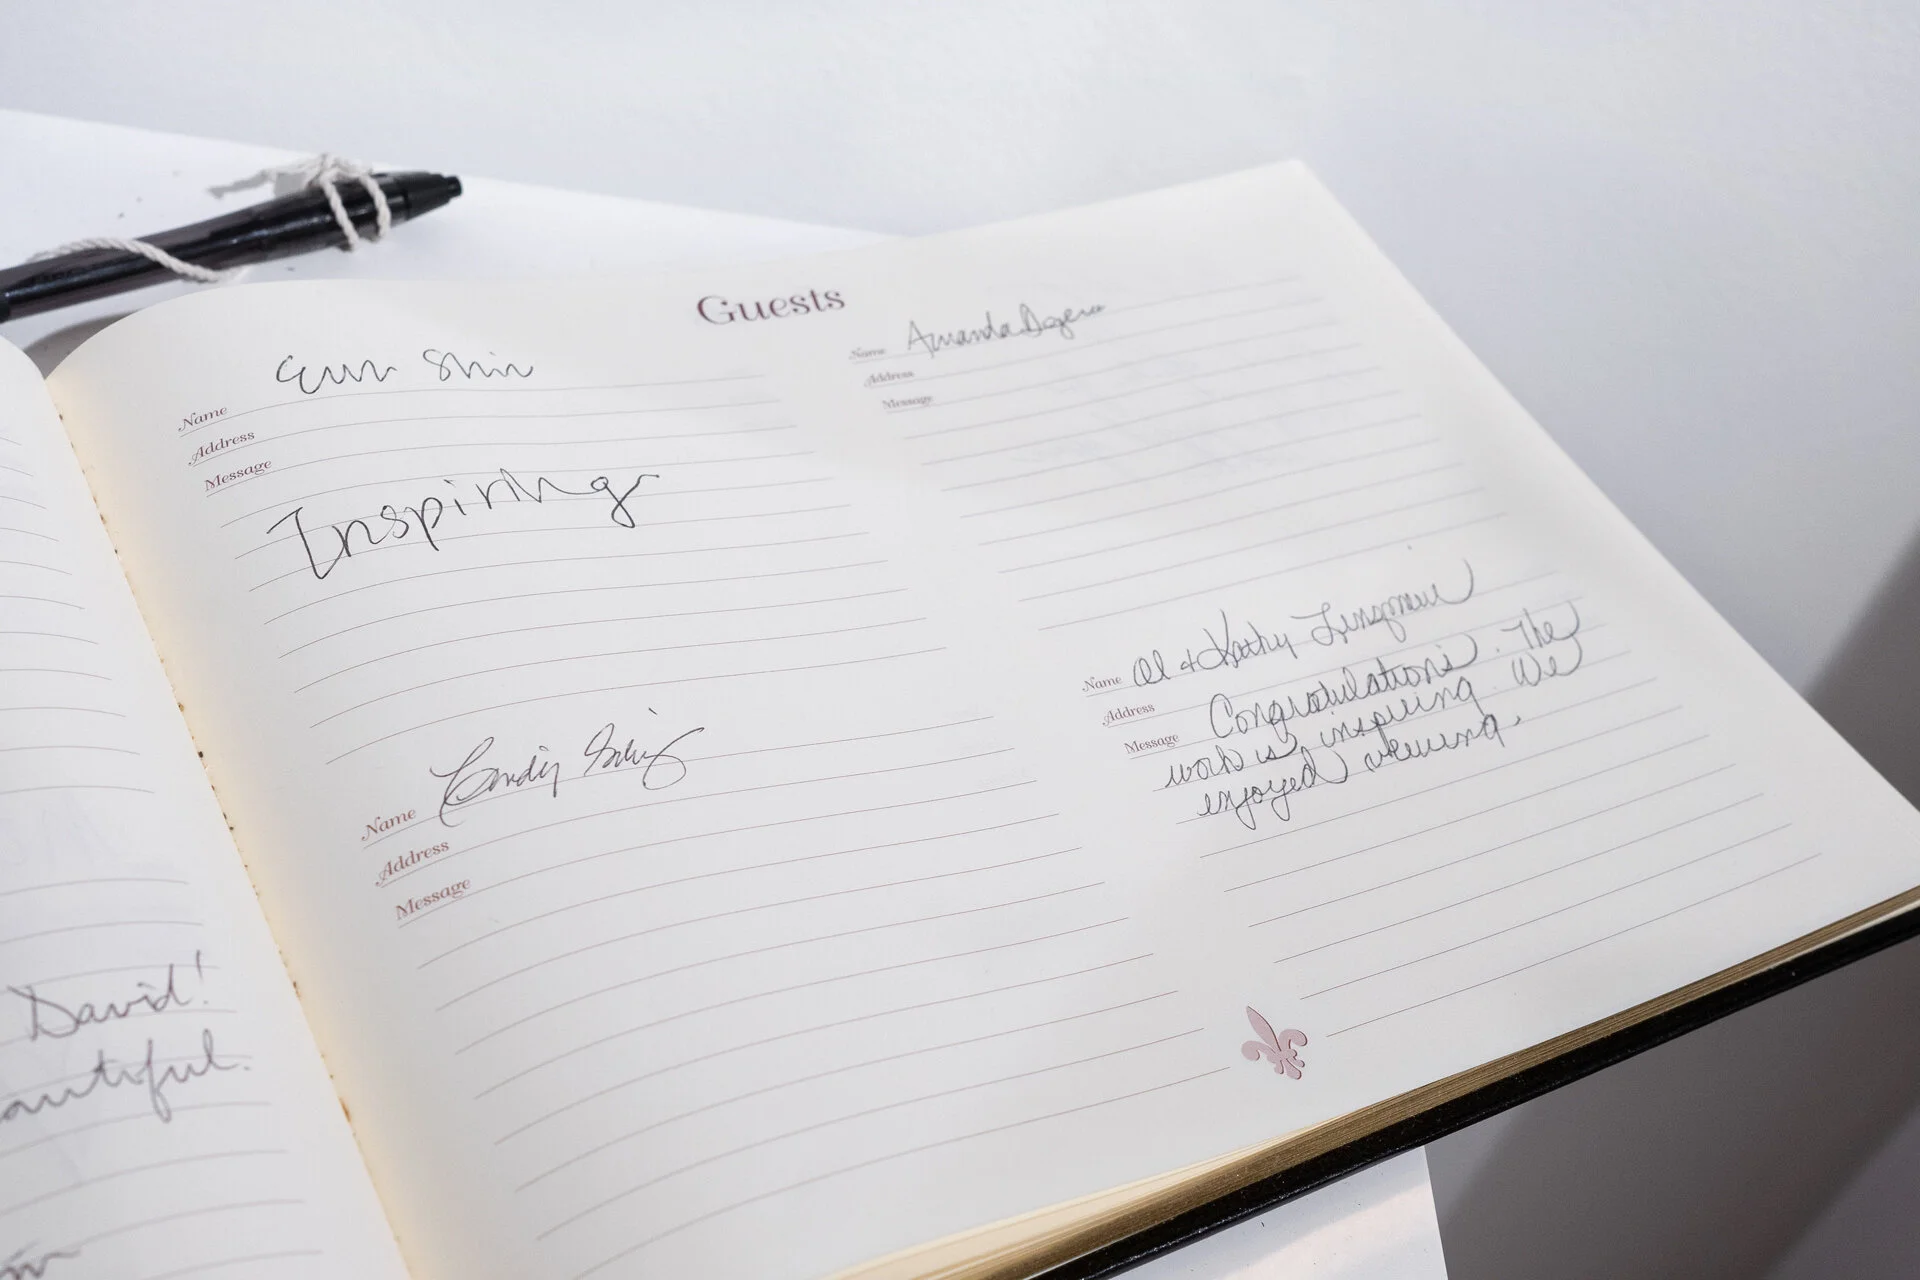 Guests
Name Eun Shin
Address
Message
Inspiring
Name
Address
Message
Name Amanda
Address
Message
Name Al + Kathy
Address
Message Congratulations. The
work is inspiring We
enjoyed viewing.
David!
autiful.